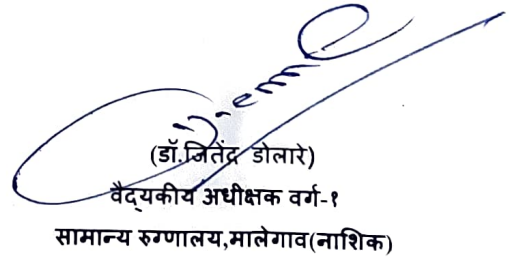 (डॉ.जितेंद्र डोलारे)
वैद्यकीय अधीक्षक वर्ग-१
सामान्य रुग्णालय,मालेगाव(नाशिक)